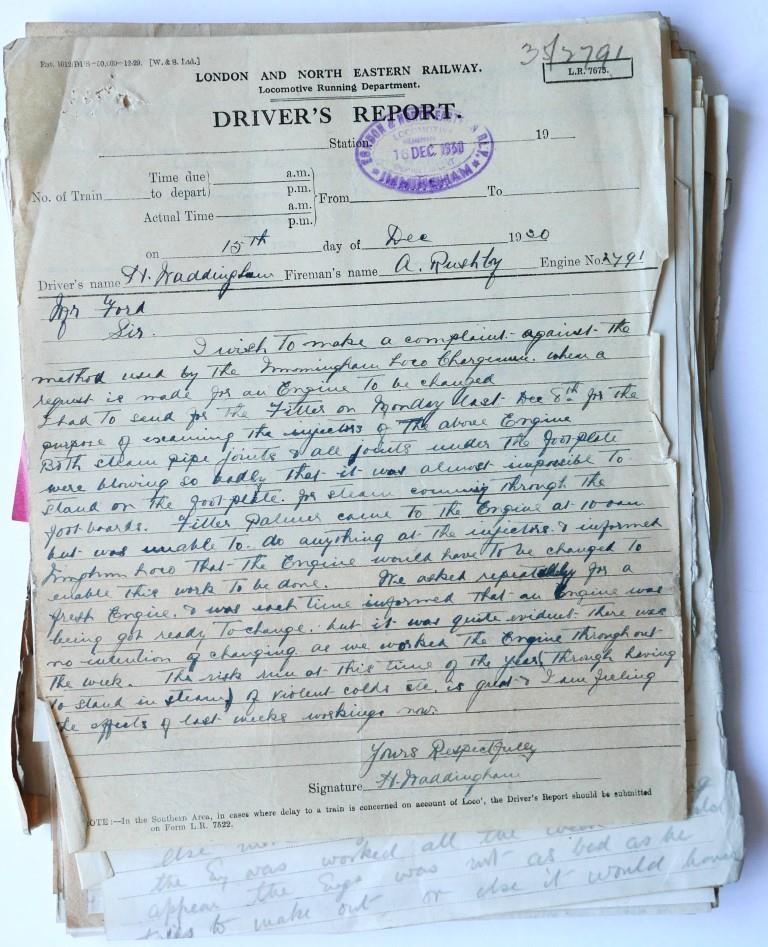 35/2791
Est. 1012/D1/S—50,000—12-29. [W. & S. Ltd.]
L.R. 7675.
LONDON AND NORTH EASTERN RAILWAY.
Locomotive Running Department.
DRIVER'S REPORT.
Station 19
LONDON & NORTH EASTERN RLY.
LOCOMOTIVE
16 DEC. 1930
IMMINGHAM
Time due a.m.
No. of Train to depart p.m. From To
Actual Time a.m.
p.m.
on 15th day of Dec 1930
Driver's name H. Waddingham Fireman's name A. Rushby Engine No. 2791
Mr Ford
Sir.
I wish to make a complaint against the
method used by the Immingham Loco Chargeman. when a
request is made for an Engine to be changed
I had to send for the Fitter on Monday last Dec 8th for the
purpose of examining the injectors of the above Engine
Both steam pipe joints & all joints under the footplate
were blowing so badly that it was almost impossible to
stand on the footplate. for steam coming through the
footboards. Fitter Palmer came to the Engine at 10 am
but was unable to do anything at the injectors. & informed
Imgham Loco that the Engine would have to be changed to
enable this work to be done. We asked repeatedly for a
fresh Engine. & was each time informed that an Engine was
being got ready to change. but it was quite evident there was
no intention of changing as we worked the Engine throughout
the week. The risk run at this time of the year, through having
to stand in steam, of violent colds etc. is great & I am feeling
the effects of last weeks workings now.
Yours Respectfully
Signature H. Waddingham
NOTE:—In the Southern Area, in cases where delay to a train is concerned on account of Loco', the Driver's Report should be submitted
on Form L.R. 7522.
else
the Eng was worked all the
appear the Engs was not as bad as he
tries to make out or else it would have